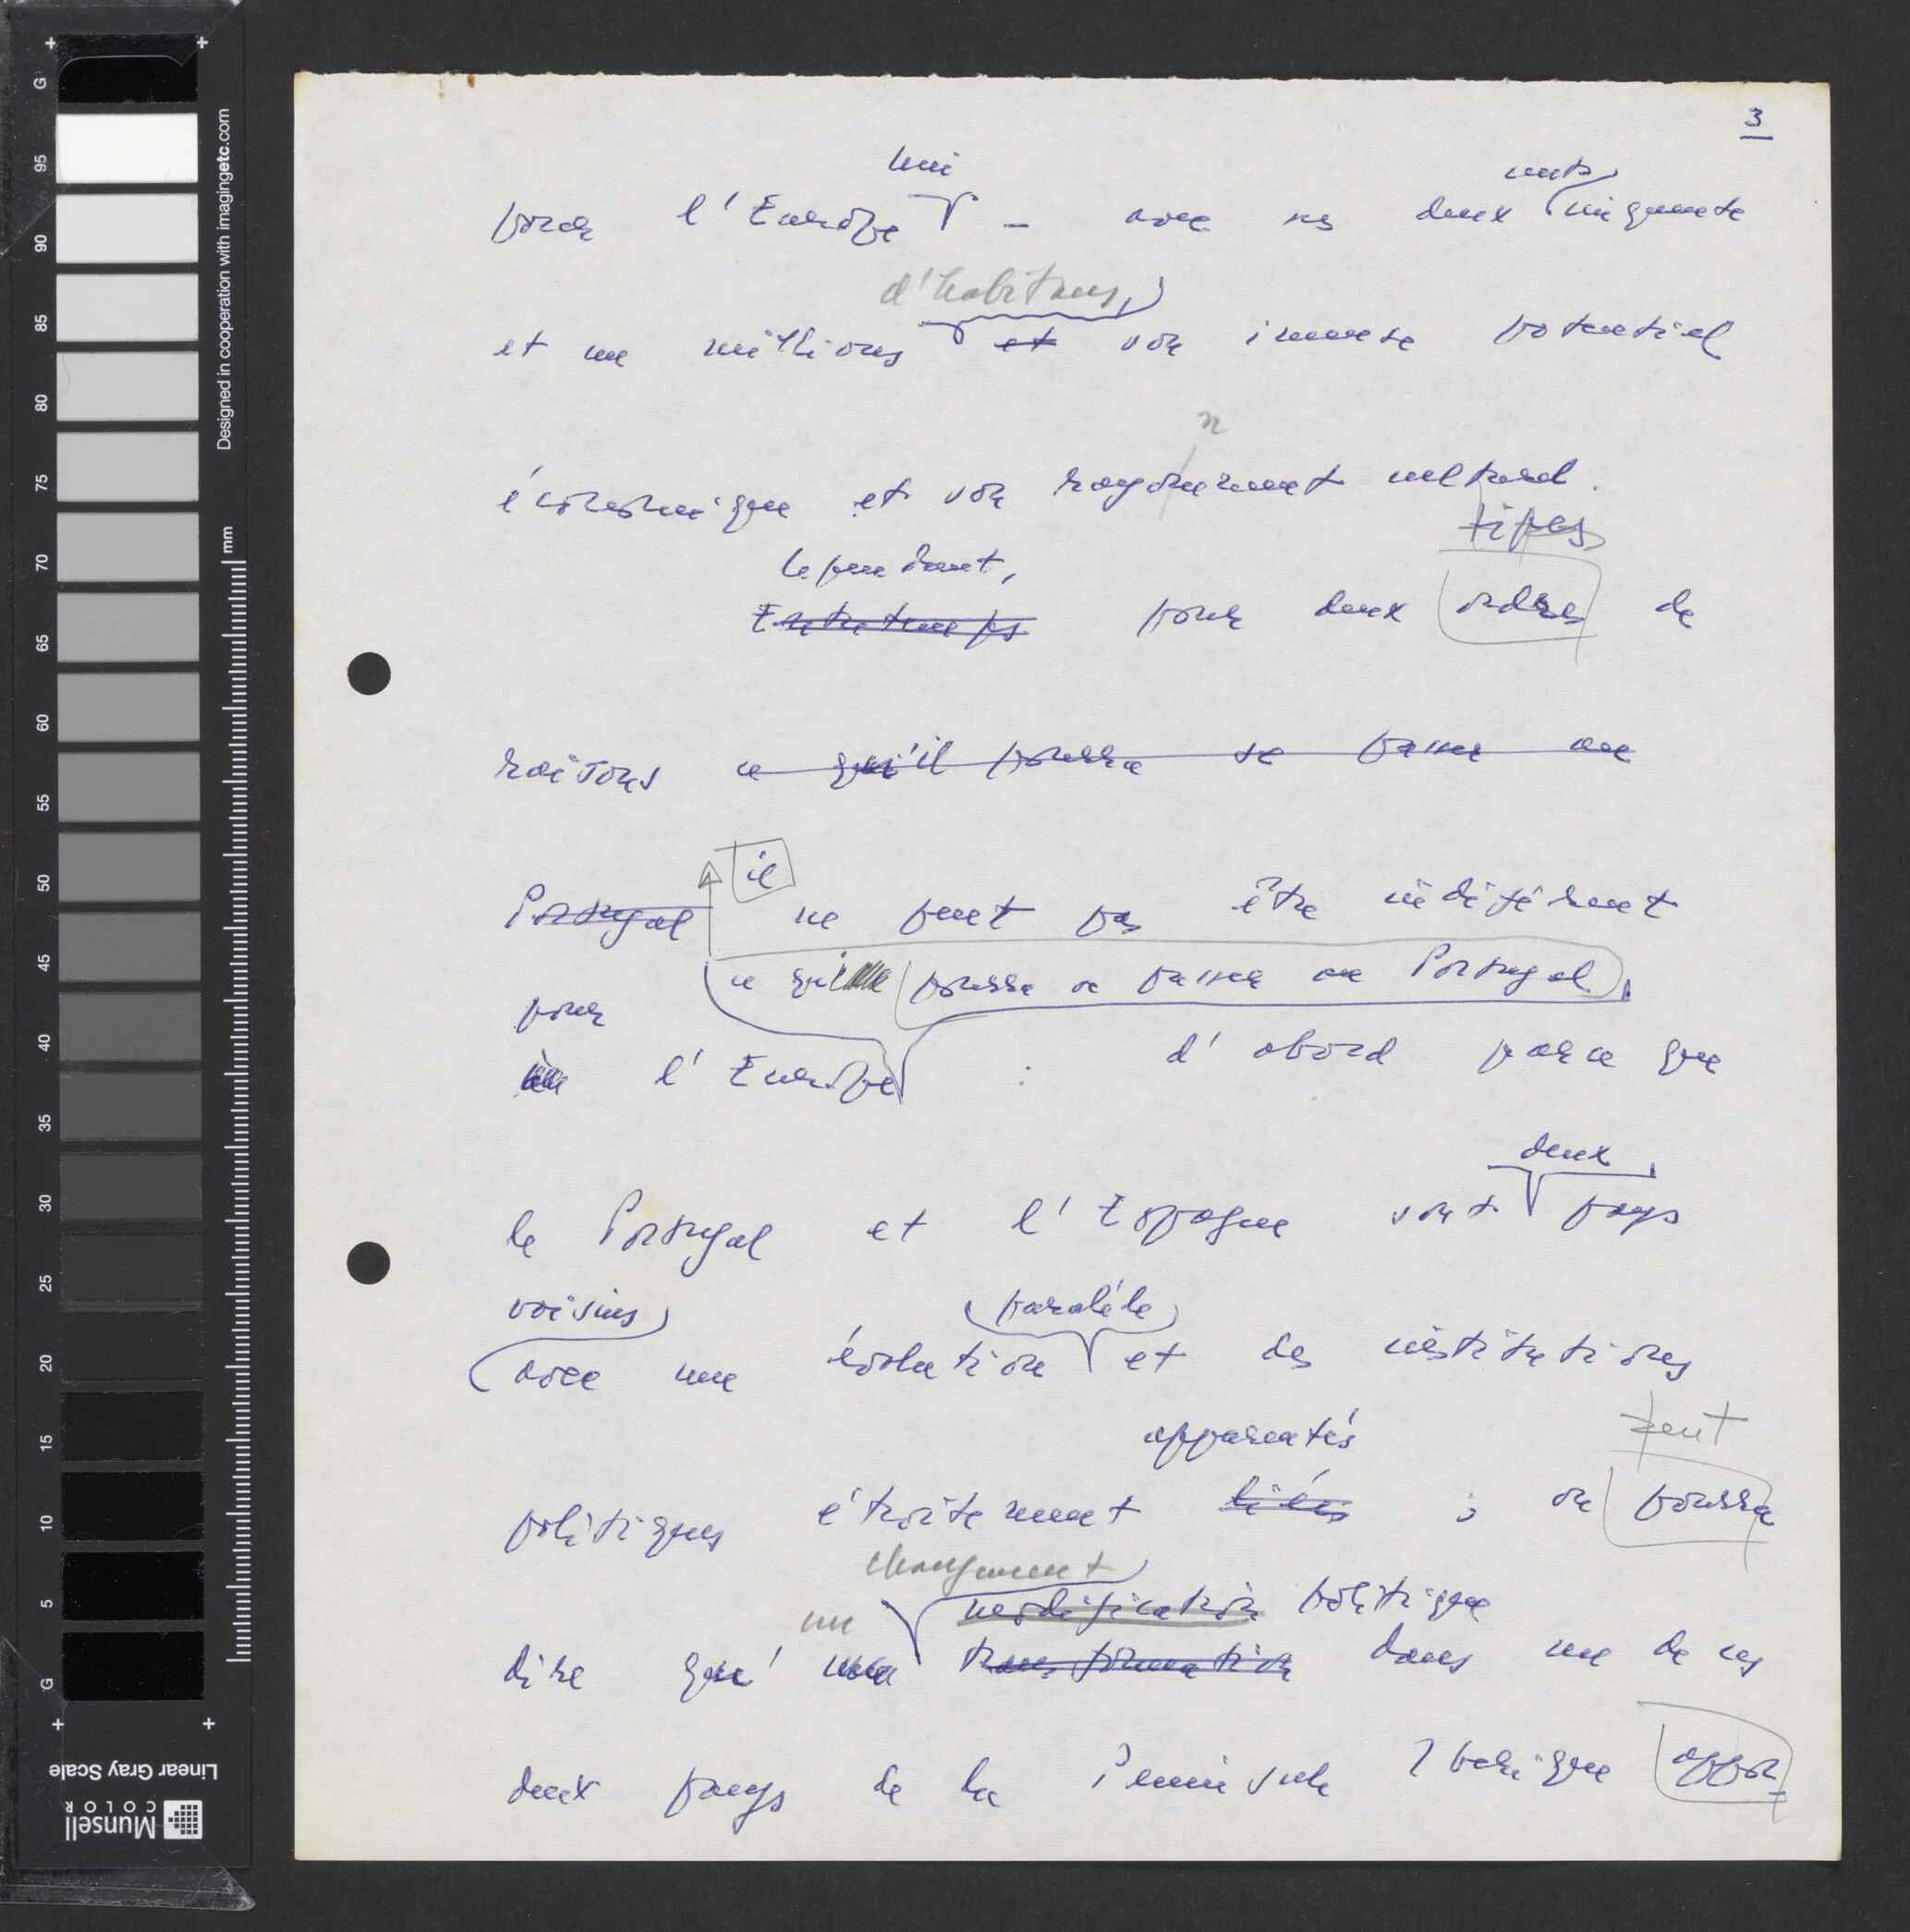 3
uni
pour l'Europe – avec ses deux cinquante
cents
d'habitans,
et un millions et son imense potentiel
n
économique et son rayonement culturel.
tipes
Cependant,
Entretemps pour deux ordres de
raisons ce qu'il pourra se passer au
il
Portugal ne peut pas être indiférent
ce qui pourra se passer au Portugal
pour
l'Europe : d'abord parce que
deux
le Portugal et l'Espagne sont pays
voisins paralèle
avec une évolution et des institutions
apparentés
peut
politiques étroitement liées ; on pourra
changement
un modification politique
dire qu' une transformation dans un de ces
deux pays de la Péninsule Ibérique appor-
G 95 90 85 80 75 70 65 60 55 50 45 40 35 30 25 20 15 10 5 G
Designed in cooperation with imagingetc.com
mm
Linear Gray Scale
Munsell
COLOR